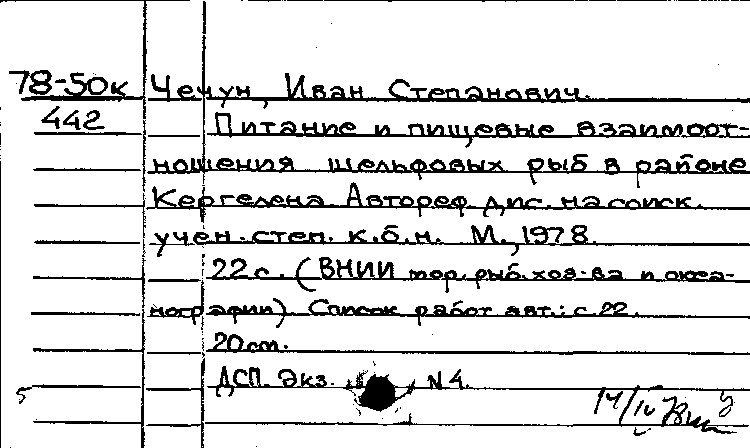 78-50к Чечун, Иван Степанович.
442 Питание и пищевые взаимоот-
ношения шельфовых рыб в районе
Кергелена. Автореф. дис. на соиск.
учен. степ. к.б.н. М., 1978.
22 с. (ВНИИ мор. рыб. хоз-ва и океа-
нографии). Список работ авт.: с. 22.
20 см.
ДСП. Экз. N 4.
5 14/IV